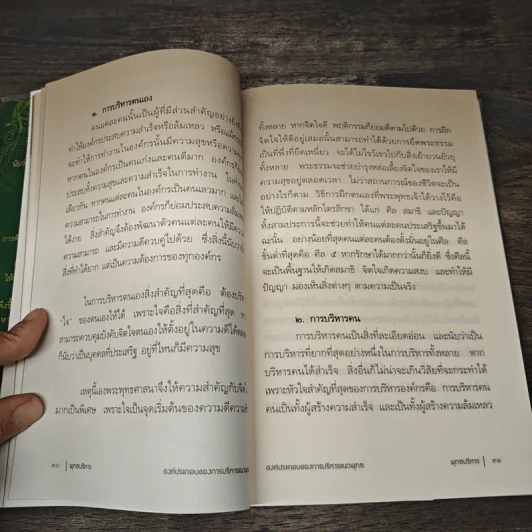 ๑. การบริหารตนเอง
คนแต่ละคนนั้นเป็นผู้ที่มีส่วนสำคัญอย่างยิ่งที่
ทำให้องค์กรประสบความสำเร็จหรือล้มเหลว หรือแม้แต่
จะทำให้การทำงานในองค์กรนั้นมีความสุขหรือความทุกข์
หากคนในองค์กรเป็นคนเก่งและคนดีมาก องค์กรก็
ประสบทั้งความสุขและความสำเร็จในการทำงาน ในทำนอง
เดียวกัน หากแต่ละคนในองค์กรเป็นคนเลวมาก และไม่มี
ความสามารถในการทำงาน องค์กรก็ย่อมประสบความล้มเหลว
ได้ง่าย สิ่งสำคัญจึงต้องพัฒนาตัวคนแต่ละคนให้มีความรู้
ความสามารถ และมีความดีควบคู่ไปด้วย ซึ่งสิ่งนี้นับว่าเป็น
สิ่งที่ทำได้ยาก แต่เป็นความต้องการของทุกองค์กร
ในการบริหารตนเองสิ่งสำคัญที่สุดคือ ต้องบริหาร
"ใจ" ของตนเองให้ได้ เพราะใจคือสิ่งที่สำคัญที่สุด
สามารถควบคุมบังคับจิตใจตนเองให้ตั้งอยู่ในความดีได้ตลอด
ก็นับว่าเป็นบุคคลที่ประเสริฐ อยู่ที่ไหนก็มีความสุข
เหตุนี้เองพระพุทธศาสนาจึงให้ความสำคัญกับจิตใจ
มากเป็นพิเศษ เพราะใจเป็นจุดเริ่มต้นของความดีความชั่ว
๓๐ | พุทธบริหาร
องค์ประกอบของการบริหารแนวพุทธ
ทั้งหลาย หากจิตใจดี พฤติกรรมก็ย่อมดีตามไปด้วย การฝึก
จิตใจให้ดีอยู่เสมอนั้นสามารถทำได้ด้วยการยึดพระธรรม
เป็นที่พึ่งที่ยึดเหนี่ยว จะได้ไม่ไขว้เขวไปกับสิ่งเย้ายวนยั่วยุ
ทั้งหลาย พระธรรมจะช่วยบำรุงหล่อเลี้ยงจิตใจของเราให้มี
ความสุขอยู่ตลอดเวลา ไม่ว่าสถานการณ์ของชีวิตจะเป็น
อย่างไรก็ตาม วิธีการฝึกตนเองที่พระพุทธเจ้าได้วางไว้คือ
ให้ปฏิบัติตามหลักไตรสิกขา ได้แก่ ศีล สมาธิ และปัญญา
ทั้งสามประการนี้จะช่วยทำให้คนแต่ละคนประเสริฐขึ้นมาได้
ฉะนั้น อย่างน้อยที่สุดคนแต่ละคนต้องตั้งมั่นอยู่ในศีล ศีล
ขั้นต่ำที่สุดคือ ศีล ๕ หากรักษาได้มากกว่านั้นก็ยิ่งดี ซึ่งศีลนี้
จะเป็นพื้นฐานให้เกิดสมาธิ จิตใจเกิดความสงบ และทำให้มี
ปัญญา มองเห็นสิ่งต่างๆ ตามความเป็นจริง
๒. การบริหารคน
การบริหารคนเป็นสิ่งที่ละเอียดอ่อน และนับว่าเป็น
การบริหารที่ยากที่สุดอย่างหนึ่งในการบริหารทั้งหลาย หาก
บริหารคนได้สำเร็จ สิ่งอื่นก็ไม่น่าจะเกินวิสัยที่จะกระทำได้
เพราะหัวใจสำคัญที่สุดของการบริหารองค์กรคือ การบริหารคน
คนเป็นทั้งผู้สร้างความสำเร็จ และเป็นทั้งผู้สร้างความล้มเหลว
องค์ประกอบของการบริหารแนวพุทธ
พุทธบริหาร | ๓๑